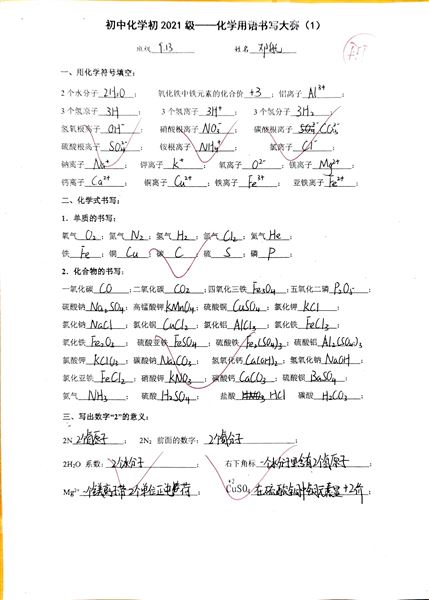 初中化学初2021级——化学用语书写大赛（1）
班级 9.13 姓名
一、用化学符号填空：
2个水分子 2H₂O ； 氧化铁中铁元素的化合价 +3 ；铝离子 Al³⁺ ；
3个氢原子 3H ； 3个氢离子 3H⁺ ； 3个氢分子 3H₂ ；
氢氧根离子 OH⁻ ； 硝酸根离子 NO₃⁻ ； 碳酸根离子 CO₃²⁻ ；
硫酸根离子 SO₄²⁻ ； 铵根离子 NH₄⁺ ； 氯离子 Cl⁻ ；
钠离子 Na⁺ ； 钾离子 K⁺ ； 氧离子 O²⁻ ；镁离子 Mg²⁺ ；
钙离子 Ca²⁺ ； 铜离子 Cu²⁺ ； 铁离子 Fe³⁺ ； 亚铁离子 Fe²⁺ ；
二、化学式书写：
1．单质的书写：
氧气 O₂ ；氮气 N₂ ；氢气 H₂ ；氯气 Cl₂ ；氦气 He ；
铁 Fe ；铜 Cu ；碳 C ；硫 S ；磷 P ；
2．化合物的书写：
一氧化碳 CO ；二氧化碳 CO₂ ；四氧化三铁 Fe₃O₄ ；五氧化二磷 P₂O₅ ；
硫酸钠 Na₂SO₄ ；高锰酸钾 KMnO₄ ；硫酸铜 CuSO₄ ；氯化钾 KCl ；
氯化钠 NaCl ；氯化铜 CuCl₂ ；氯化铝 AlCl₃ ；氯化铁 FeCl₃ ；
氧化铁 Fe₂O₃ ；硫酸亚铁 FeSO₄ ；硫酸铁 Fe₂(SO₄)₃ ；硫酸铝 Al₂(SO₄)₃ ；
氯酸钾 KClO₃ ；碳酸钠 Na₂CO₃ ；氢氧化钙 Ca(OH)₂ ；氢氧化钠 NaOH ；
氯化亚铁 FeCl₂ ；硝酸钾 KNO₃ ；碳酸钙 CaCO₃ ；硫酸钡 BaSO₄ ；
氨气 NH₃ ；硫酸 H₂SO₄ ； 盐酸 HCl 碳酸 H₂CO₃ ；
三、写出数字“2”的意义：
2N 2个氮原子 ； 2N₂ 前面的数字： 2个氮分子 ；
2H₂O 系数： 2个水分子 ； 右下角标 一个水分子里含有2个氢原子 ；
Mg²⁺ 一个镁离子带2个单位正电荷 ； +2 CuSO₄ 在硫酸铜中铜元素显+2价 ；